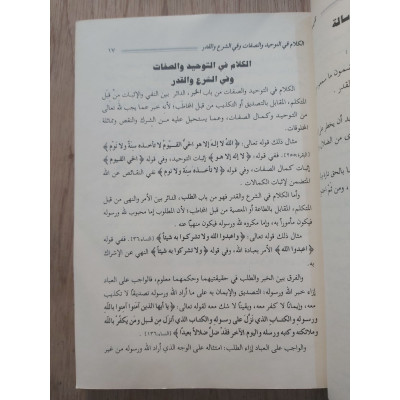 الكلام في التوحيد والصفات وفي الشرع والقدر
١٧
الكلام في التوحيد والصفات
وفي الشرع والقدر
الكلام في التوحيد والصفات من باب الخبر، الدائر بين النفي والإثبات من قبل
المتكلم، المقابل بالتصديق أو التكذيب من قبل المخاطب؛ لأنه خبر عما يجب لله تعالى
من التوحيد وكمال الصفات، وعما يستحيل عليه من الشرك والنقص ومماثلة
المخلوقات.
مثال ذلك قوله تعالى: ﴿ الله لا إله إلا هو الحي القيوم لا تأخذه سنة ولا نوم ﴾
(البقرة:٢٥٥)، ففي قوله: ﴿ الله لا إله إلا هو ﴾ إثبات التوحيد، وفي قوله ﴿ الحي القيوم ﴾
إثبات كمال الصفات، وفي قوله: ﴿ لا تأخذه سنة ولا نوم ﴾ نفي النقائص عن الله
المتضمن لإثبات الكمالات.
وأما الكلام في الشرع والقدر فهو من باب الطلب، الدائر بين الأمر والنهي من قبل
المتكلم، المقابل بالطاعة أو المعصية من قبل المخاطب؛ لأن المطلوب إما محبوب لله ورسوله
فيكون مأموراً به، وإما مكروه لله ورسوله فيكون منهيًّا عنه.
مثال ذلك قوله تعالى: ﴿ واعبدوا الله ولا تشركوا به شيئاً ﴾ (النساء:٣٦). ففي قوله:
﴿ اعبدوا الله ﴾ الأمر بعبادة الله، وفي قوله: ﴿ ولا تشركوا به شيئاً ﴾ النهي عن الإشراك
به.
والفرق بين الخبر والطلب في حقيقتيهما وحكمهما معلوم، فالواجب على العباد
إزاء خبر الله ورسوله: التصديق والإيمان به على ما أراد الله ورسوله تصديقاً لا تكذيب
معه، وإيماناً لا كفر معه، ويقيناً لا شك معه لقوله تعالى: ﴿ يا أيها الذين آمنوا آمنوا بالله
ورسوله والكتاب الذي نزل على رسوله والكتاب الذي أنزل من قبل ومن يكفر بالله
وملائكته وكتبه ورسله واليوم الآخر فقد ضل ضلالاً بعيداً ﴾ (النساء:١٣٦).
والواجب على العباد إزاء الطلب: امتثاله على الوجه الذي أراد الله ورسوله من غير